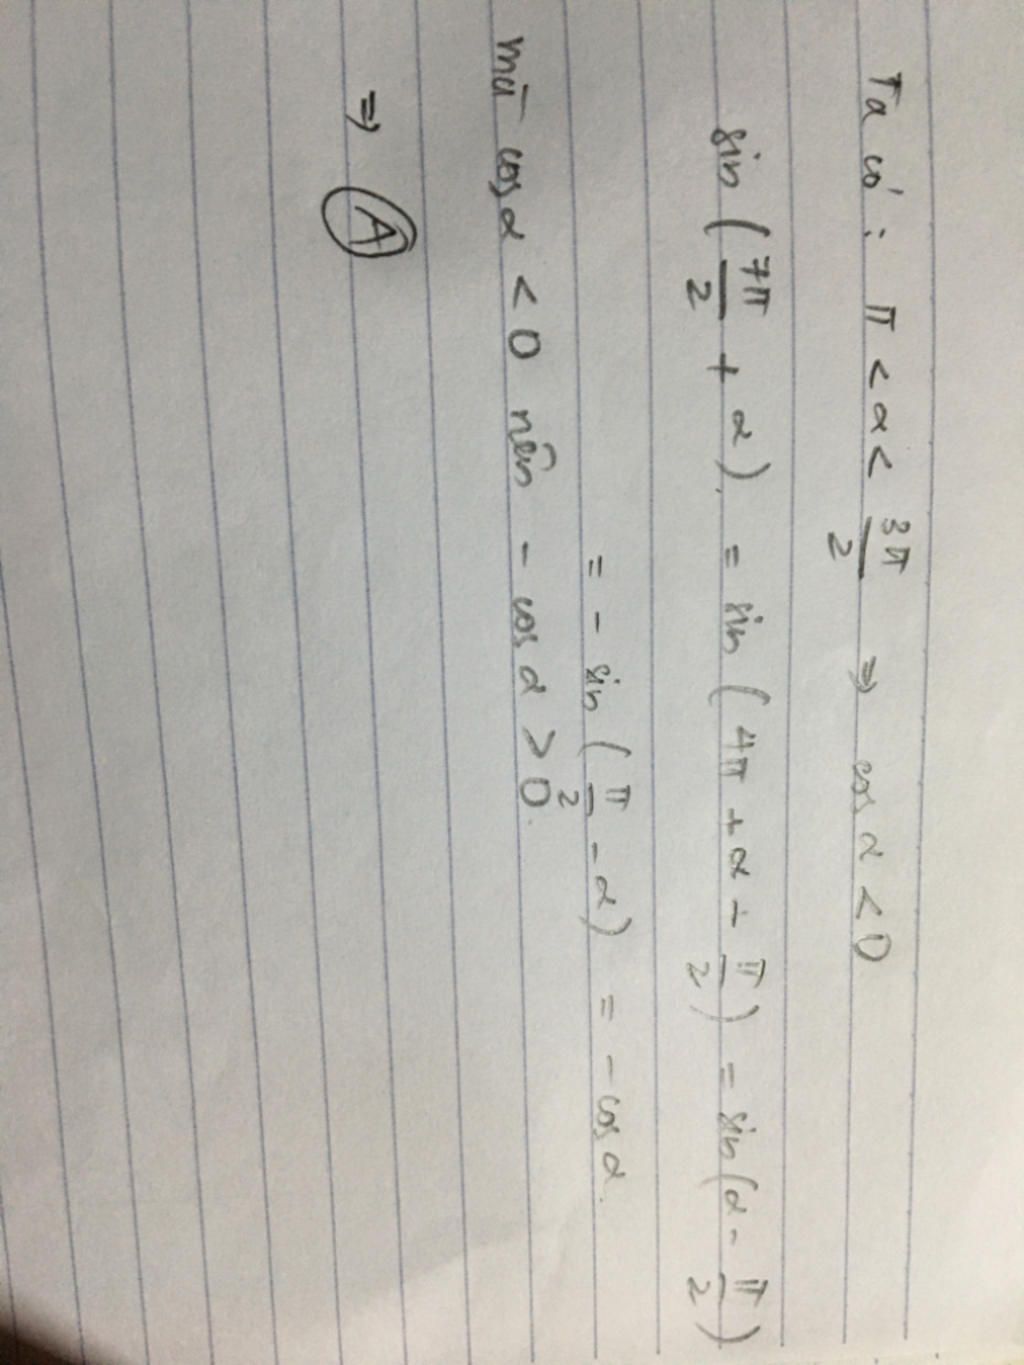 Ta có : π < α < 3π/2 ⇒ cos α < 0
sin ( 7π/2 + α ) = sin ( 4π + α - π/2 ) = sin ( α - π/2 )
= - sin ( π/2 - α ) = - cos α.
mà cos α < 0 nên - cos α > 0.
⇒ A